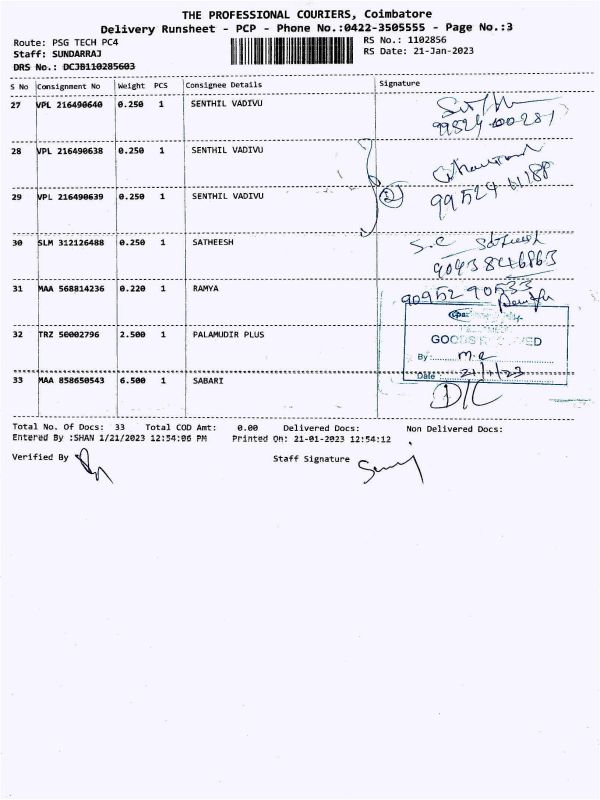 THE PROFESSIONAL COURIERS, Coimbatore
Delivery Runsheet - PCP - Phone No.:0422-3505555 - Page No.:3
Route: PSG TECH PC4 RS No.: 1102856
Staff: SUNDARRAJ RS Date: 21-Jan-2023
DRS No.: DCJB110285603
S No Consignment No Weight PCS Consignee Details Signature
27 VPL 216490640 0.250 1 SENTHIL VADIVU
28 VPL 216490638 0.250 1 SENTHIL VADIVU
29 VPL 216490639 0.250 1 SENTHIL VADIVU
2
30 SLM 312126488 0.250 1 SATHEESH
S.C Satheesh
90438 46863
31 MAA 568814236 0.220 1 RAMYA
90952 90533
32 TRZ 50002796 2.500 1 PALAMUDIR PLUS
GOODS RECEIVED
By
Date 21/1/23
33 MAA 858650543 6.500 1 SABARI
D/C
Total No. Of Docs: 33 Total COD Amt: 0.00 Delivered Docs: Non Delivered Docs:
Entered By :SHAN 1/21/2023 12:54:06 PM Printed On: 21-01-2023 12:54:12
Verified By Staff Signature